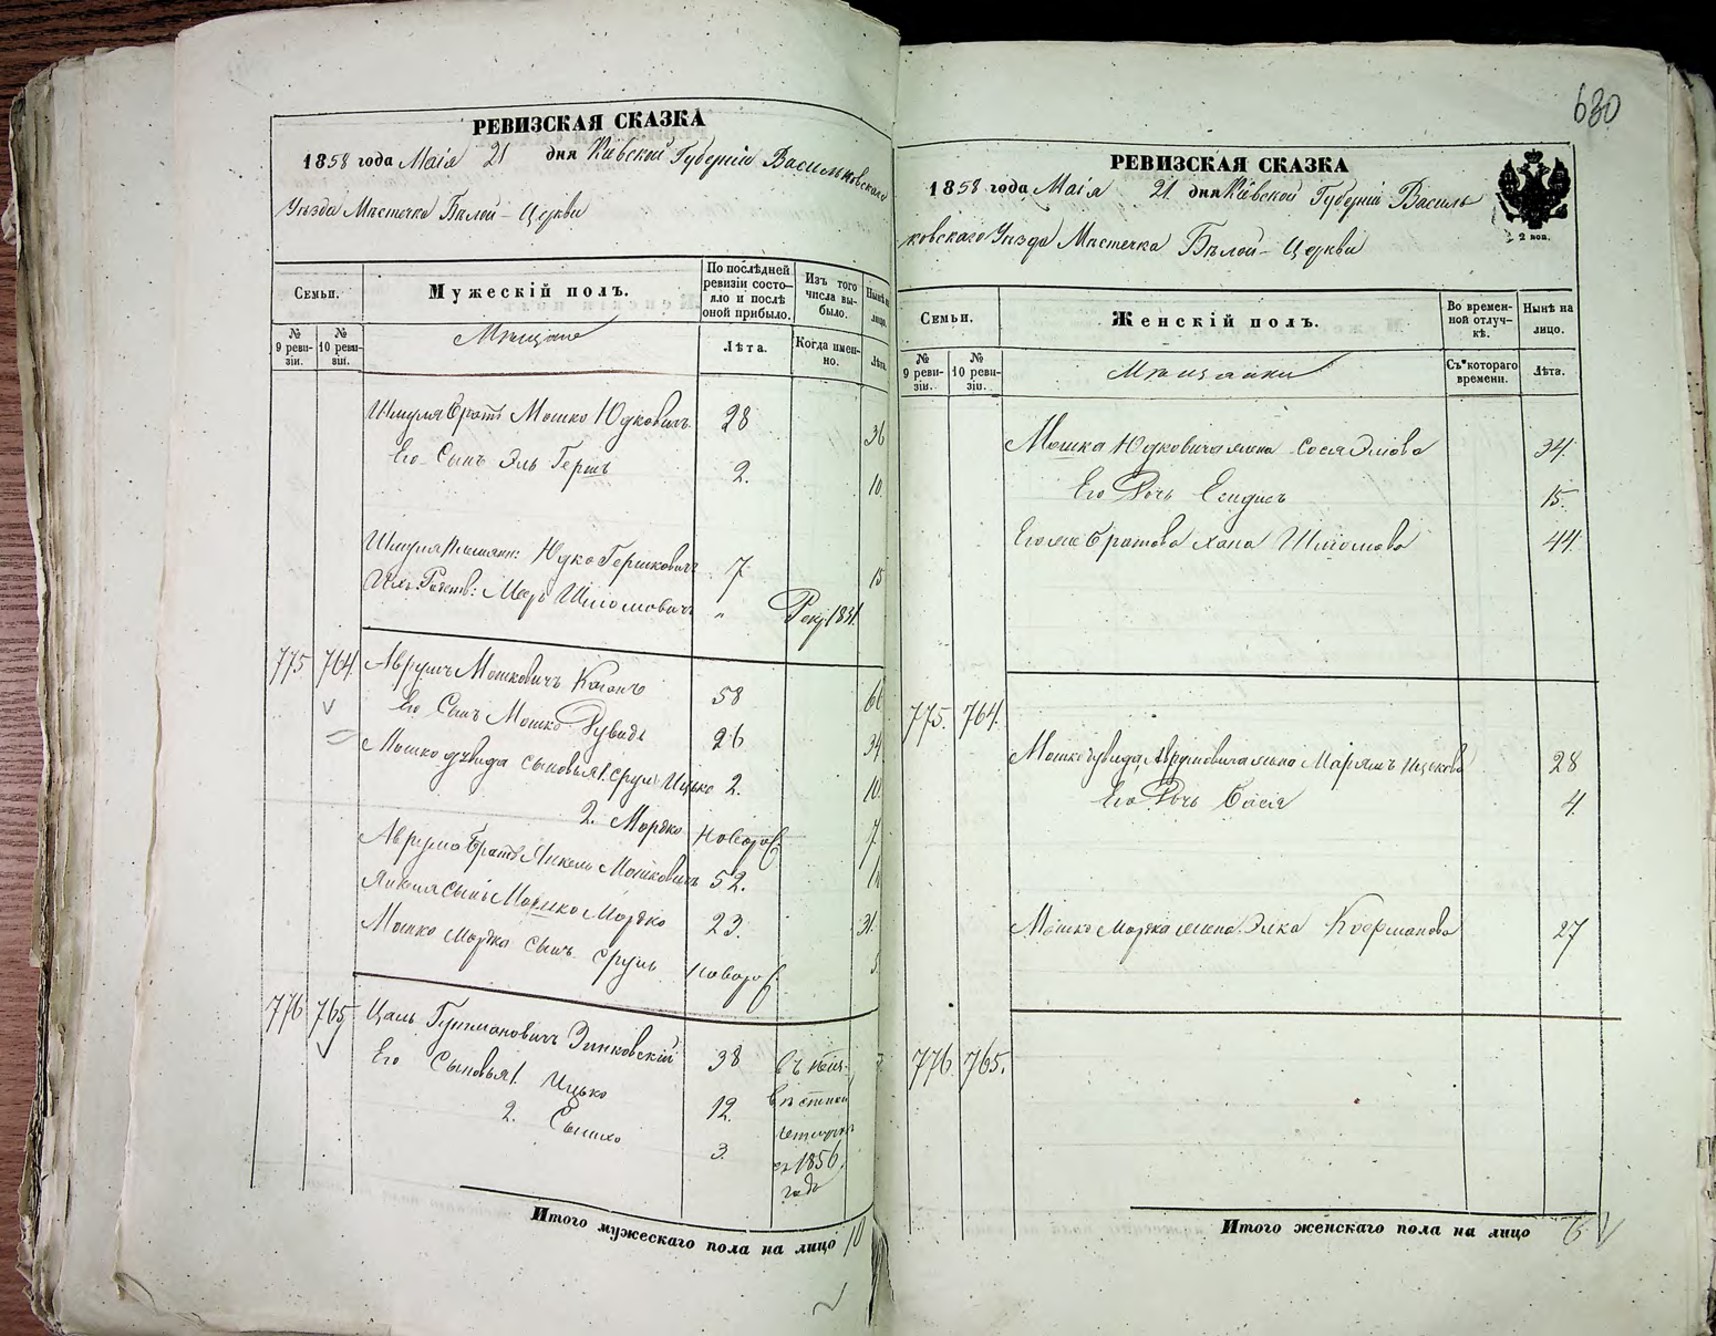 РЕВИЗСКАЯ СКАЗКА
1858 года Маія 21 дня Кіевской Губерніи Васильковскаго
Уѣзда Мѣстечка Бѣлой-Церкви
Семьи.
№ 9 ревизіи.
№ 10 ревизіи.
Мужескій полъ.
Мѣщане
По послѣдней ревизіи состояло и послѣ оной прибыло.
Лѣта.
Изъ того числа выбыло.
Когда именно.
Нынѣ на лицо.
Лѣта.
Шмуля братъ Мошко Юдковичъ 28 36
Его Сынъ Эль Гершъ 2. 10.
Шмуля Юдко Гершковичъ 7 15
Шліомовичъ " Рекр. 1851
775 764 Аврумъ Мошковичъ Коганъ 58 66
Его Сынъ Мошко Дувидъ 26 34
Мошко Дувида сыновья 1. Сруль Ицько 2. 10.
2. Мордко новорож. 7.
Аврума братъ Янкель Мошковичъ 52.
Янкеля сынъ Мошко Мордко 23. 31.
Мошко Мордка сынъ Сруль новорож.
776 765 Цаль Зинковскій 38 въ неиз-
Его Сыновья 1. Ицько 12. вѣстной
2. 3. отлучкѣ
съ 1856
года
Итого мужескаго пола на лицо 10
680
РЕВИЗСКАЯ СКАЗКА
1858 года Маія 21 дня Кіевской Губерніи Василь
ковскаго Уѣзда Мѣстечка Бѣлой-Церкви
2 коп.
Семьи.
№ 9 ревизіи.
№ 10 ревизіи.
Женскій полъ.
Мѣщанки
Во временной отлучкѣ.
Съ котораго времени.
Нынѣ на лицо.
Лѣта.
Мошка Юдковича жена Сося 34.
Его Дочь 15.
Его же братова Хана Шліомова 44.
775. 764.
Мошко Дувида Аврумовича жена Маріямъ Ицькова 28
Его Дочь Бася 4.
Мошко Мордка жена Элка 27
776 765.
Итого женскаго пола на лицо 6